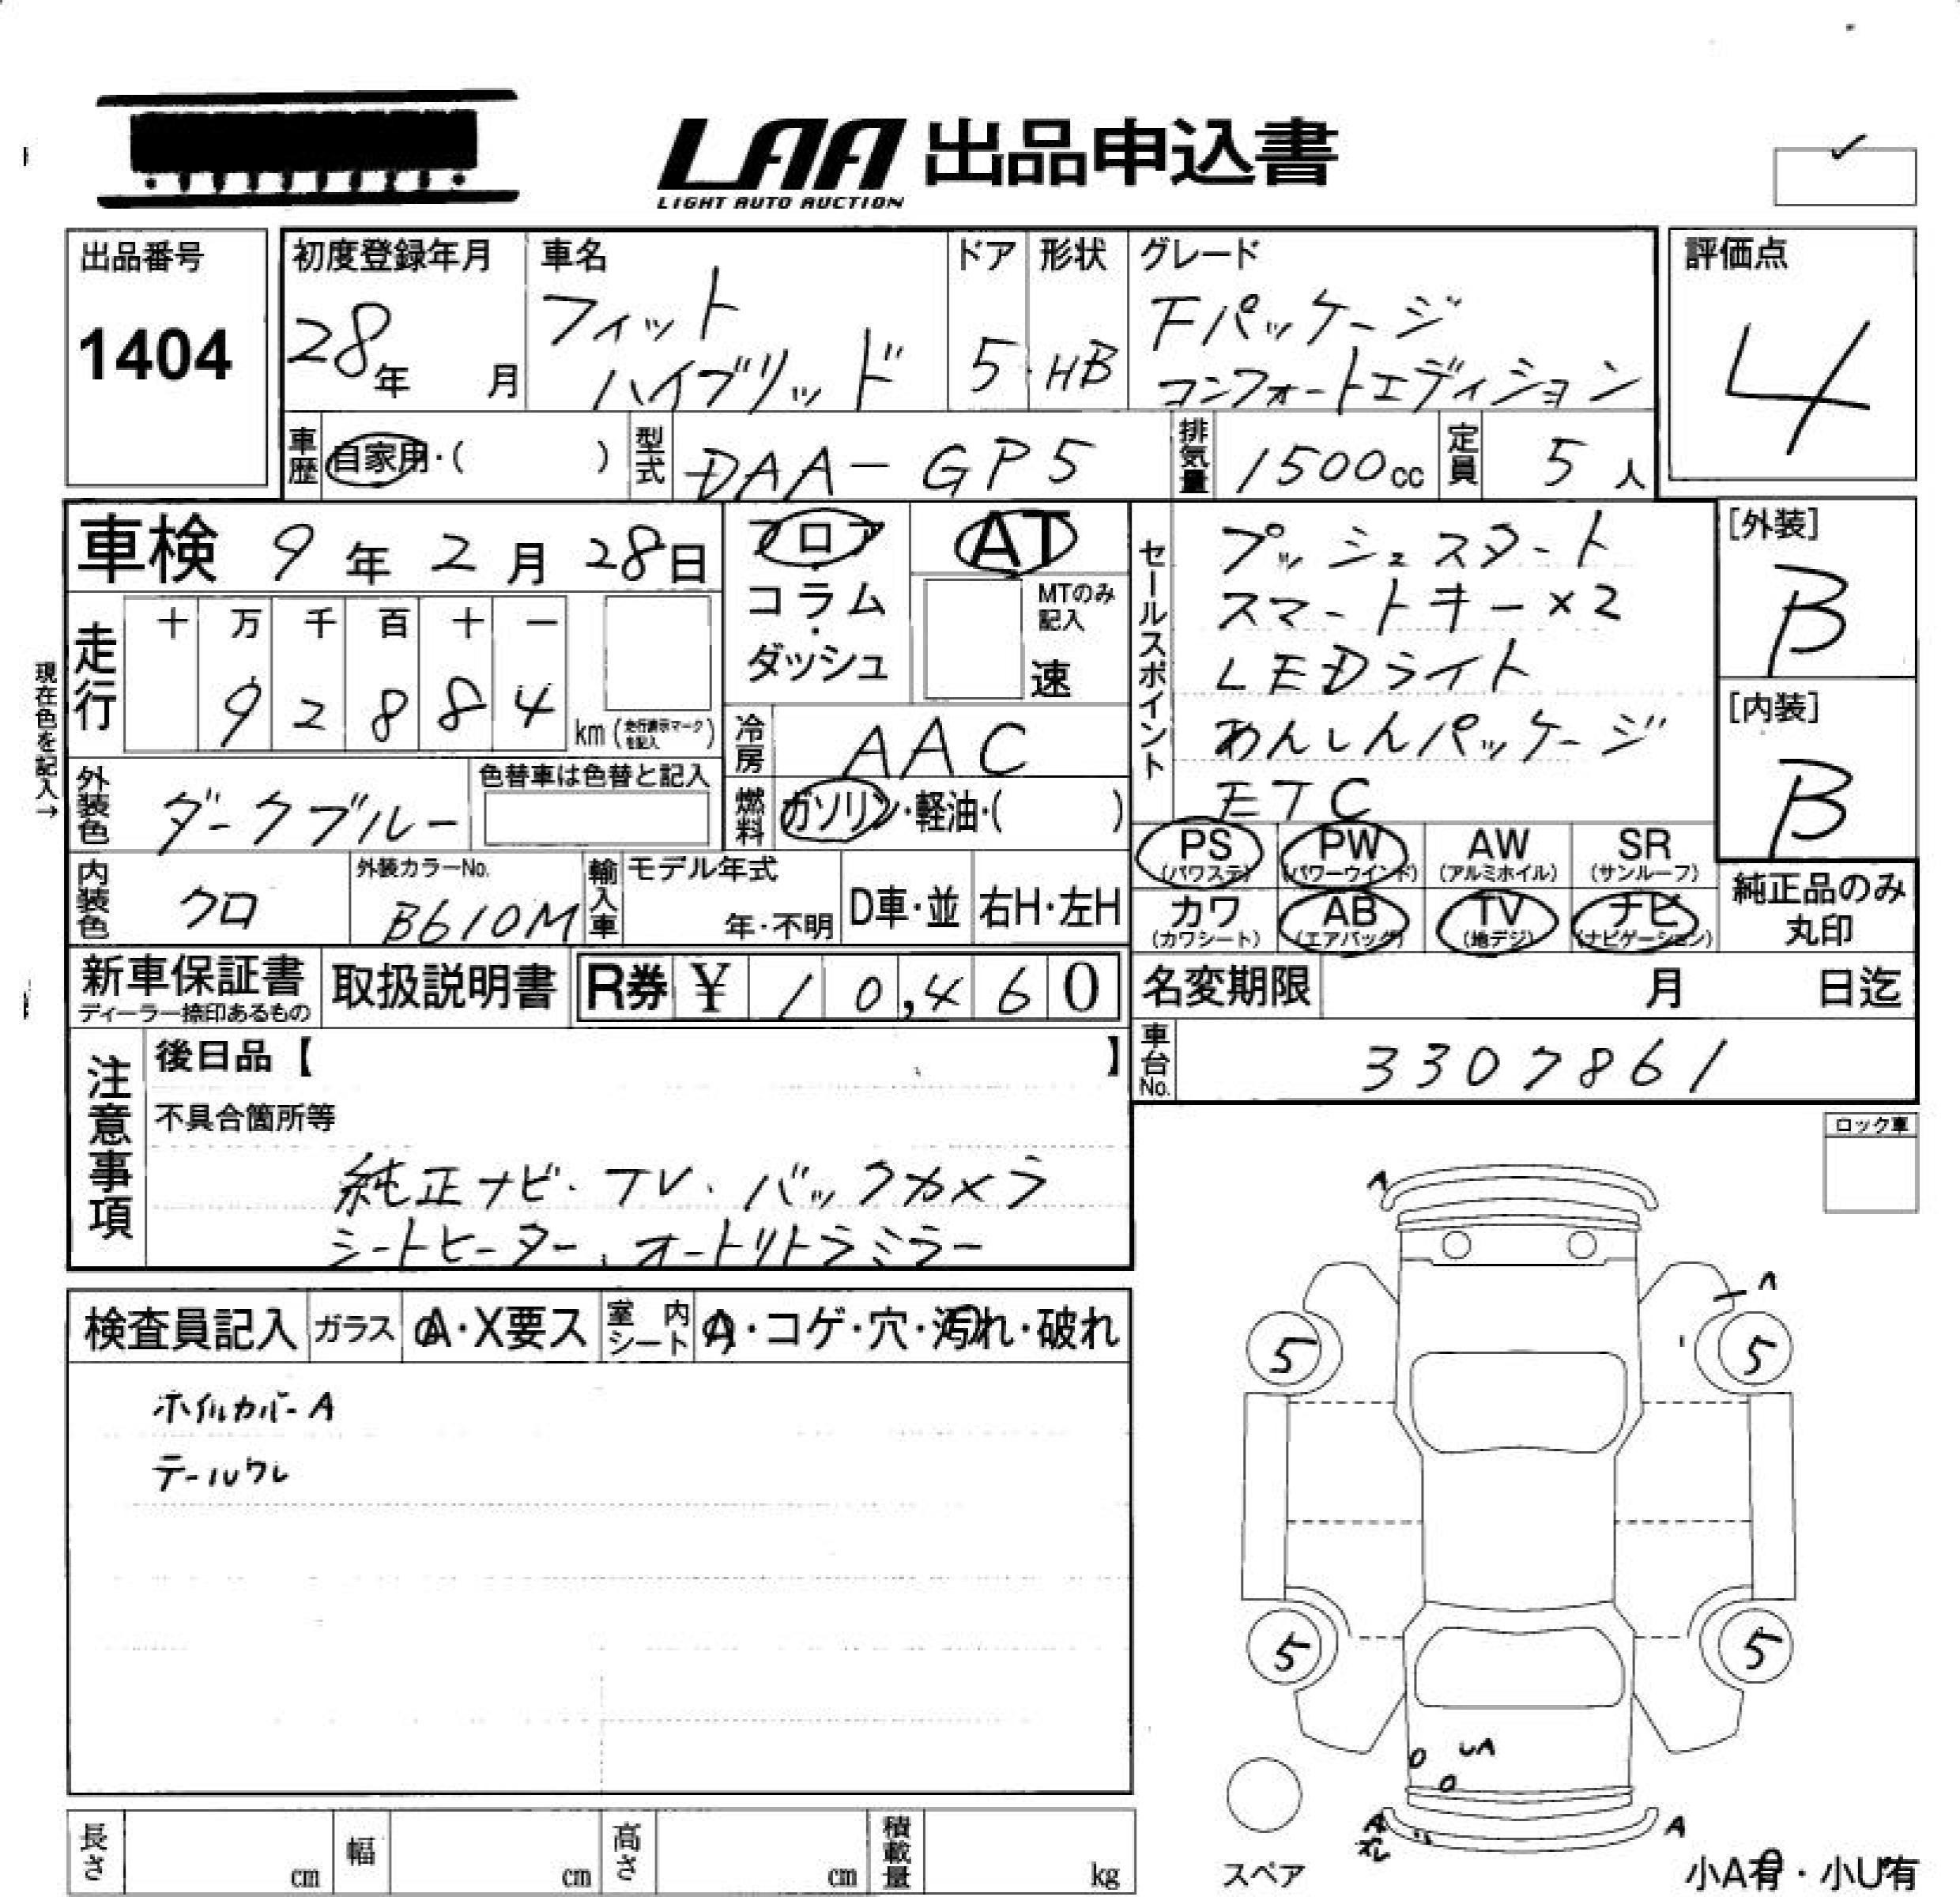 LAA 出品申込書
LIGHT AUTO AUCTION
出品番号
1404
初度登録年月
28年 月
車名
フィット
ハイブリッド
ドア
5
形状
HB
グレード
Fパッケージ
コンフォートエディション
評価点
4
車歴 自家用・( )
型式 DAA-GP5
排気量 1500cc
定員 5人
車検 9年2月28日
フロア
コラム
・
ダッシュ
AT
MTのみ
記入
速
セールスポイント
プッシュスタート
スマートキー×2
LEDライト
あんしんパッケージ
ETC
[外装]
B
[内装]
B
現在色を記入→
走行
十 万 千 百 十 一
9 2 8 8 4
km (走行表示マークを記入)
冷房 AAC
外装色 ダークブルー
色替車は色替と記入
燃料 ガソリン・軽油・( )
PS
(パワステ)
PW
(パワーウインド)
AW
(アルミホイル)
SR
(サンルーフ)
内装色 クロ
外装カラーNo.
B610M
輸入車
モデル年式
年・不明
D車・並
右H・左H
カワ
(カワシート)
AB
(エアバッグ)
TV
(地デジ)
ナビ
(ナビゲーション)
純正品のみ
丸印
新車保証書
ディーラー捺印あるもの
取扱説明書
R券 ¥ 10,460
名変期限 月 日迄
車台No. 3307861
注意事項
後日品【 】
不具合箇所等
純正ナビ・TV・バックカメラ
シートヒーター、オートリトラミラー
ロック車
検査員記入
ガラス A・X要ス
室内シート A・コゲ・穴・汚れ・破れ
ホイルカバーA
テールワレ
A
A
5
5
5
5
UA
A
A
スペア
小A有・小U有
長さ cm
幅 cm
高さ cm
積載量 kg